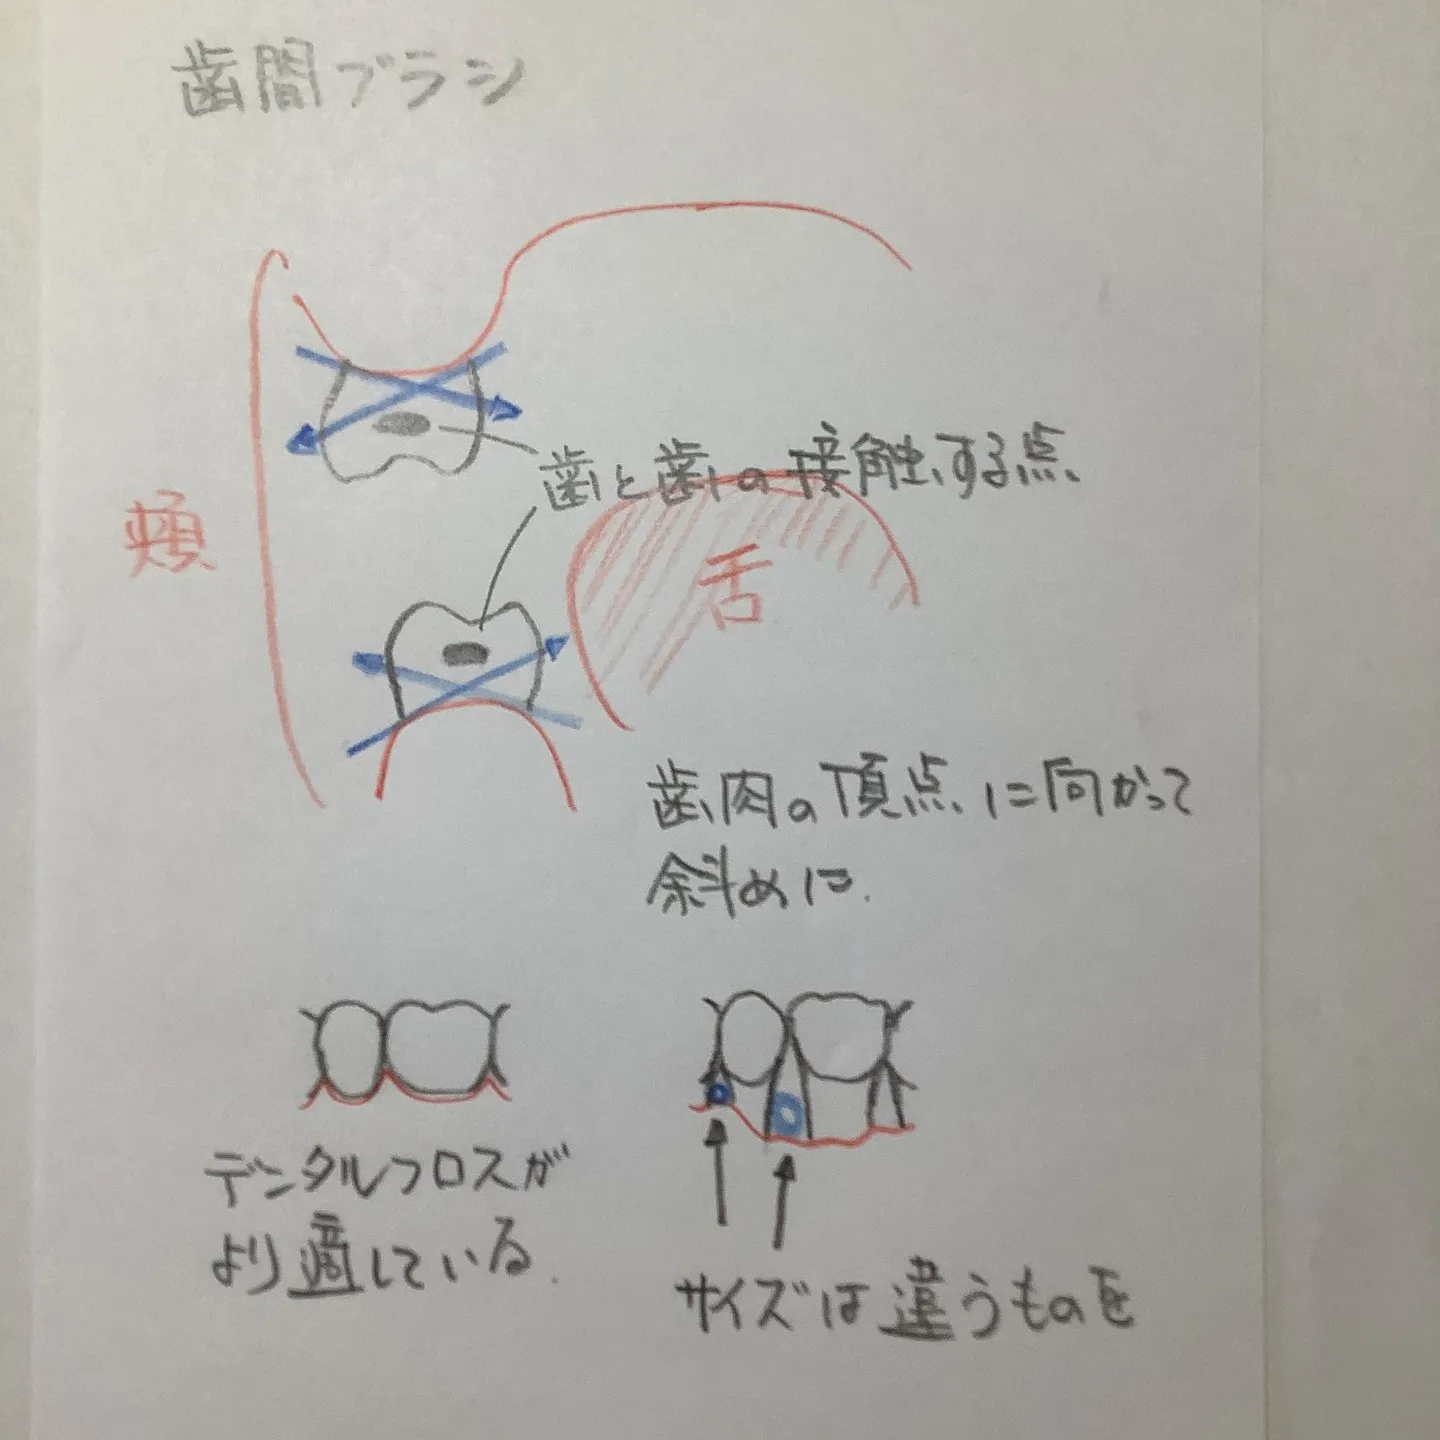 歯間ブラシ
歯と歯の接触する点
頬
舌
歯肉の頂点に向かって
斜めに.
デンタルフロスが
より適している.
サイズは違うものを